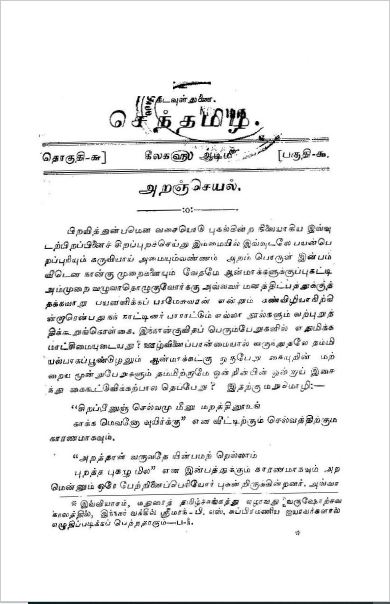 கடவுள் துணை.
செந்தமிழ்.
தொகுதி-௬] கீலகஹு ஆடிமீ [பகுதி-௯.
அறஞ்செயல்.
பிறவித்துன்பமென வசையொடு புகல்கின்ற நிலையாகிய இவ்வு
டற்பிறப்பினைச் சிறப்புறச்செய்து இம்மையில் இவ்வுடலே பயன்பெ
றப்புரியும் கருவியாய் அமையும்வண்ணம் அறம் பொருள் இன்பம்
வீடென நான்கு முறைகளையும் வேதமே ஆன்மாக்களுக்குப்புகட்டி
அம்முறை வழுவாதொழுகுவோர்க்கு அவ்வவர் மனத்திட்பத்துக்குத்
தக்கவாறு பயனளிக்கப் பரமேசுவரன் என்றும் கண்விழியாகிநிற்
நம் நாட்டினர் பாராட்டும் எல்லா நூல்களும் வற்புறுத்
திக்கூறுங்கொள்கை. இந்நான்குவிதப் பெரும்பேறுகளில்
மாட்சிமையுடையது? ஊழ்வினைப்பான்மையால் வருந்துதலே தம்மி
யல்பாகப்பூண்டுழலும் ஆன்மாக்கட்கு ஒருபேறு கைகூடின் மற்
றைய மூன்றுபேறுகளும் தமமிற்றாமே ஒன்றின்பின் ஒன்றாய் இசை
ந்து கைகூட்டுவிக்கற்பால தெப்பேறு? இதற்கு மறுமொழி:—
“சிறப்பீனுஞ் செல்வமு மீனு மறத்தினூஉங்
காக்க மெவனோ வுயிர்க்கு” என வீட்டிற்கும் செல்வத்திற்கும்
காரணமாகவும்.
“அறத்தான் வருவதே யின்பமற் றெல்லாம்
புறத்த புகழு மில” என இன்பத்துக்கும் காரணமாகவும் அற
மென்னும் ஒரே பேற்றினைப்பெரியோர் புகன்றிருக்கின்றனர். அவ்வா
* இவ்வியாசம், மதுரைத் தமிழ்ச்சங்கத்து எழாவது வருஷோற்சவ
காலத்தில், இந்நகர் வக்கீல் ஸ்ரீமாந்-பி. எஸ். சுப்பிரமணிய ஐயரவர்களால்
எழுதிப்படிக்கப் பெற்றதாகும்—ப-ர்.
*